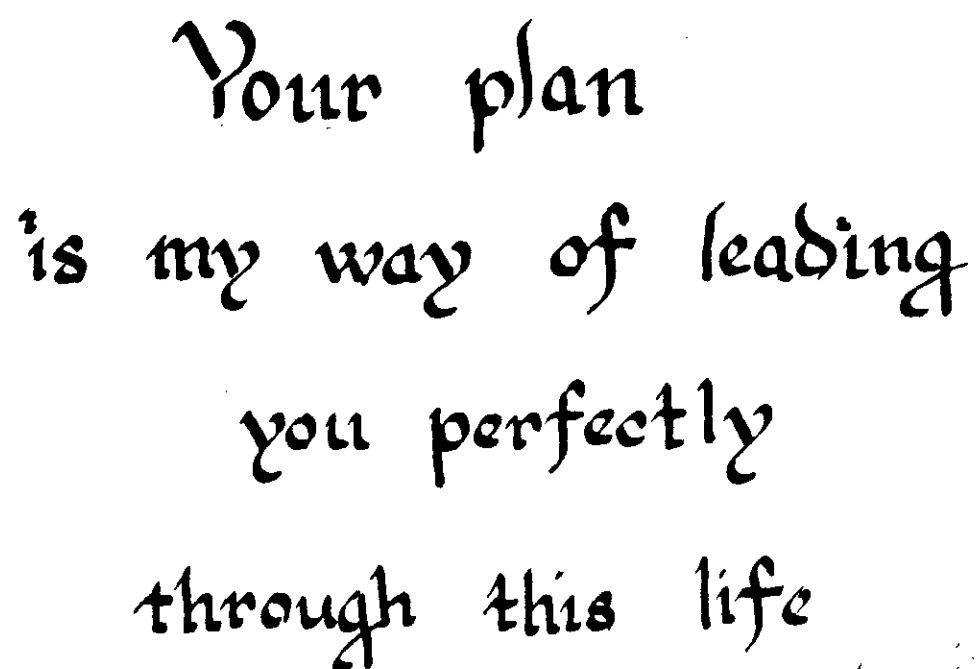 Your plan
is my way of leading
you perfectly
through this life